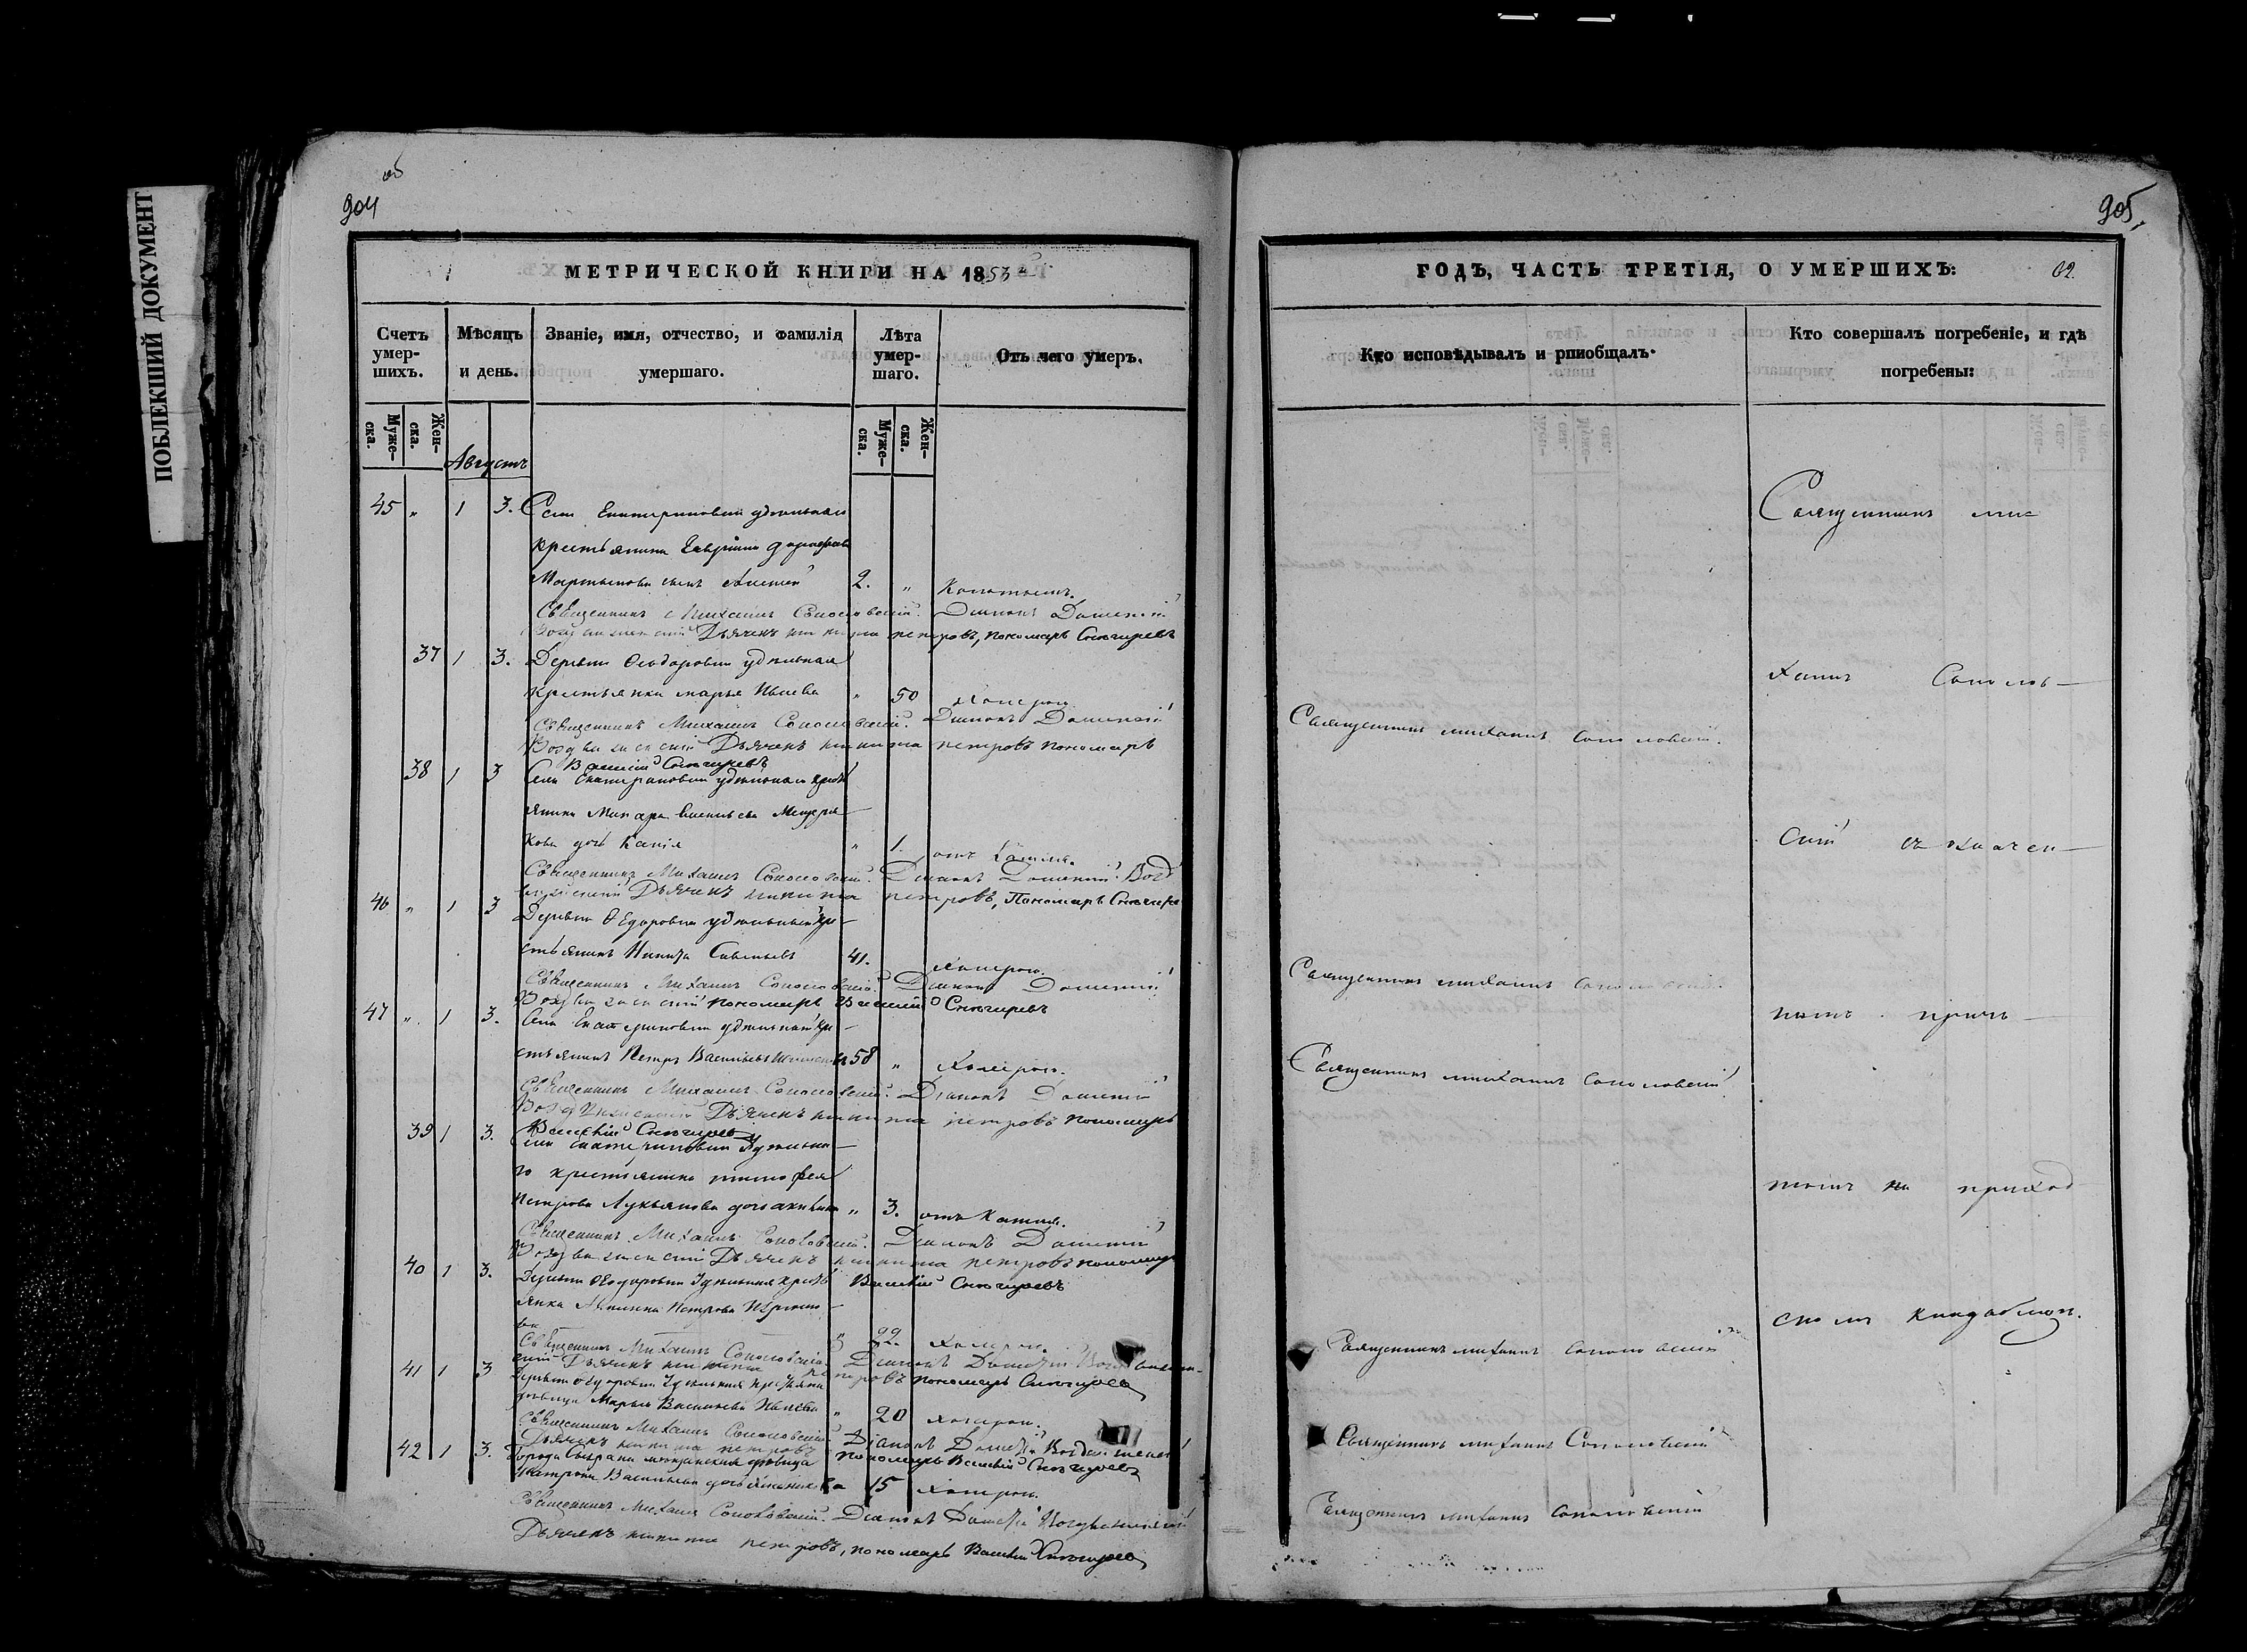 ПОБЛЕКШИЙ ДОКУМЕНТ
об
904
МЕТРИЧЕСКОЙ КНИГИ НА 1853
Счетъ умер-шихъ.
Мѣсяцъ и день.
Званіе, имя, отчество, и фамилія умершаго.
Лѣта умер-шаго.
Отъ чего умеръ.
Муже-ска.
Жен-ска.
Муже-ска.
Жен-ска.
Августъ
45 " 1 3. Села Екатериновки удѣльнаго
крестьянина
Мартынова сынъ 2. "
Священникъ Михаилъ Соколовскій. Діаконъ
Дьячекъ Никита Петровъ, пономарь Снѣгиревъ
37 1 3. Деревни Ѳеодоровки удѣльная
крестьянка Марья " 50 Холерою
Священникъ Михаилъ Соколовскій. Діаконъ
Воздвиженскій Дьячекъ Никита Петровъ пономарь
Василій Снѣгиревъ
38 1 3 Села Екатериновки удѣльнаго крест
янина Макара
кова дочь " 1. отъ Кашля.
Священникъ Михаилъ Соколовскій. Діаконъ
Дьячекъ Никита Петровъ, Пономарь
46 " 1 3 Деревни Ѳедоровки удѣльный кре
стьянинъ Никита Савельевъ 41. Холерою.
Священникъ Михаилъ Соколовскій. Діаконъ
Воздвиженскій пономарь Василій Снѣгиревъ
47 " 1 3. Села Екатериновки удѣльный кре
стьянинъ Петръ Васильевъ 58 " Холерою.
Священникъ Михаилъ Соколовскій. Діаконъ
Воздвиженскій Дьячекъ Никита Петровъ пономарь
Василій Снѣгиревъ
39 1 3. Села Екатериновки Удѣльна
го крестьянина Тимофея
Петрова Лукьянова дочь " 3. отъ Кашля.
Священникъ Михаилъ Соколовскій. Діаконъ
Воздвиженскій Дьячекъ Никита Петровъ пономарь
Василій Снѣгиревъ
40 1 3. Деревни Ѳеодоровки Удѣльная крест
янка Петрова
" 22. Холерою.
Священникъ Михаилъ Соколовскій. Діаконъ
Дьячекъ Никита Петровъ пономарь
41 1 3 Деревни Ѳедоровки Удѣльная крестьянка
дѣвица Марья Васильева " 20 Холерою.
Священникъ Михаилъ Соколовскій Діаконъ
Дьячекъ Никита Петровъ пономарь Василій Снѣгиревъ
42 1 3. Города Сызрани мѣщанская дѣвица
Матрона Васильева 15 Холерою.
Священникъ Михаилъ Соколовскій. Діаконъ
Дьячекъ Никита Петровъ, пономарь Василій Снѣгиревъ
905
ГОДЪ, ЧАСТЬ ТРЕТІЯ, О УМЕРШИХЪ:
62.
Кто исповѣдывалъ и рпиобщалъ.
Кто совершалъ погребеніе, и гдѣ погребены:
Священникъ Ми
хаилъ Соколов
скій съ означен
нымъ прич
томъ на приход
скомъ кладбищѣ.
Священникъ Михаилъ Соколовскій.
Священникъ Михаилъ Соколовскій
Священникъ Михаилъ Соколовскій
Священникъ Михаилъ Соколовскій
Священникъ Михаилъ Соколовскій
Священникъ Михаилъ Соколовскій